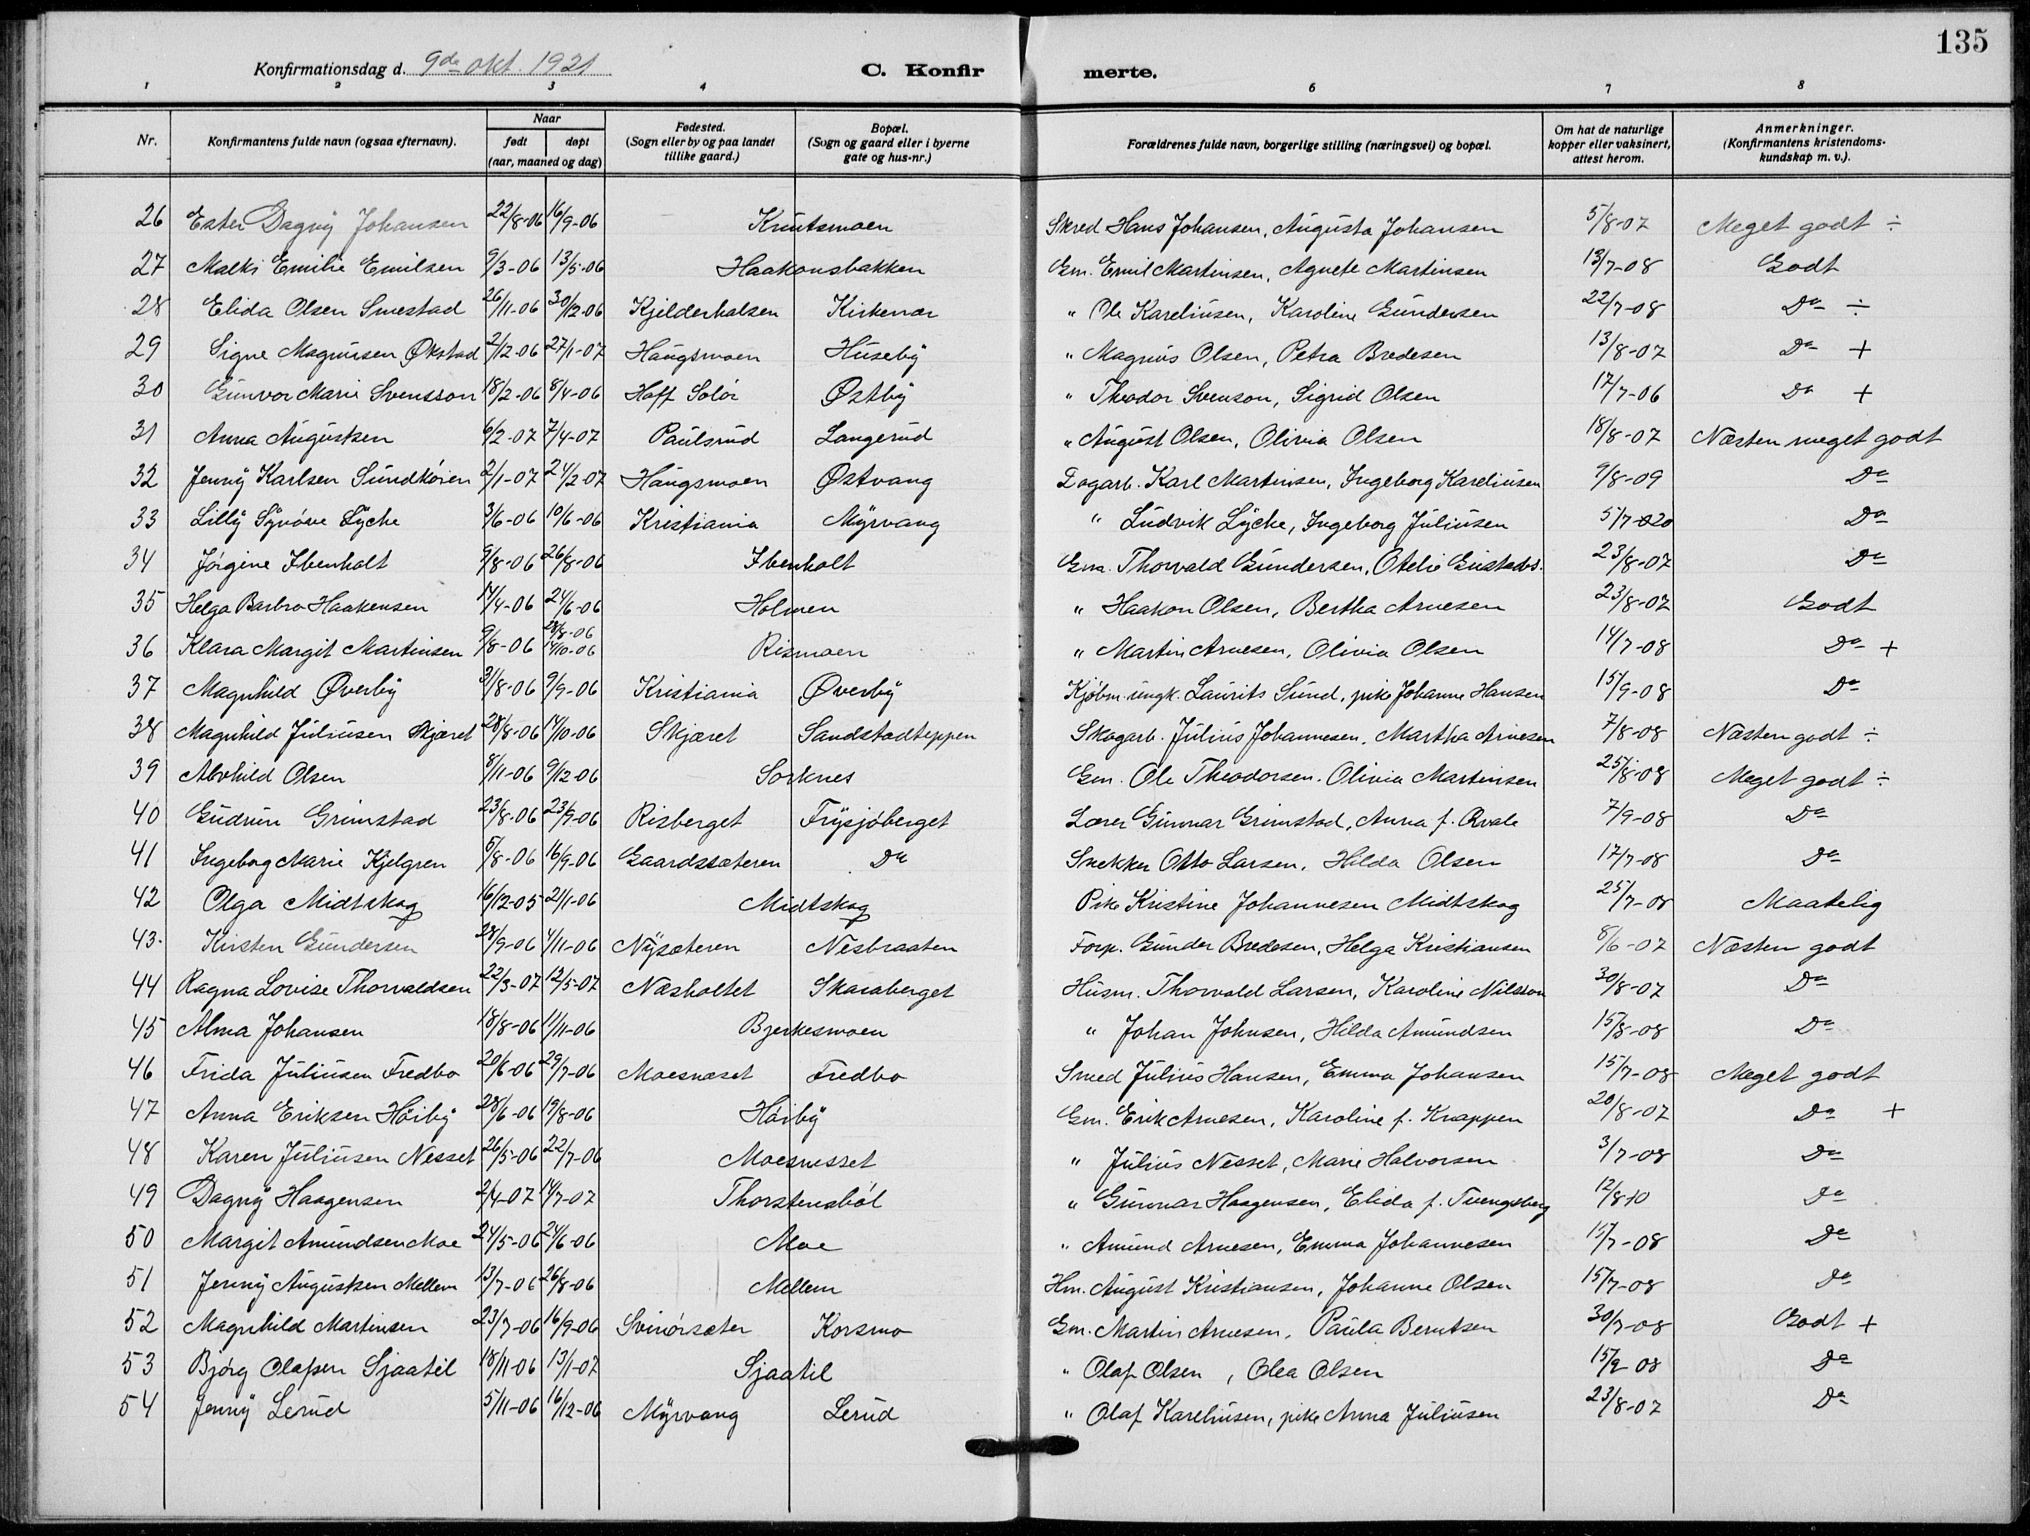 135
Konfirmationsdag d. 9de okt. 1921 C. Konfirmerte.
1 2 3 4 6 7 8
Nr. Konfirmantens fulde navn (ogsaa efternavn). Naar født døpt (aar, maaned og dag) Fødested. (Sogn eller by og paa landet tillike gaard.) Bopæl. (Sogn og gaard eller i byerne gate og hus-nr.) Forældrenes fulde navn, borgerlige stilling (næringsvei) og bopæl. Om hat de naturlige kopper eller vaksinert, attest herom. Anmerkninger. (Konfirmantens kristendomskundskap m. v.).
26 Ester Dagny Johansen 22/8-06 16/9-06 Knutsmoen Skred Hans Johansen, Augusta Johansen 5/8-07 Meget godt ÷
27 Malki Emilie Emilsen 9/3-06 13/5-06 Haakonsbakken Gm. Emil Martinsen, Agnete Martinsen 13/7-08 Godt
28 Elida Olsen Smestad 26/11-06 30/12-06 Kjelderhalsen Kirkenær " Ole Kareliusen, Karoline Gundersen 22/7-08 Do ÷
29 Signe Magnusen Økstad 2/12-06 27/1-07 Haugsmoen Huseby " Magnus Olsen, Petra Bredesen 13/8-07 Do +
30 Gunvor Marie Svensson 18/2-06 8/4-06 Hoff Solør Østby " Theodor Svenson, Sigrid Olsen 17/7-06 Do +
31 Anna Augustsen 6/2-07 7/4-07 Paulsrud Langerud " August Olsen, Olivia Olsen 18/8-07 Næsten meget godt
32 Jenny Karlsen Sundkøien 2/1-07 24/2-07 Haugsmoen Østvang Dagarb. Karl Martinsen, Ingeborg Kareliusen 9/8-09 Do
33 Lilly Synøve Lycke 3/6-06 10/6-06 Kristiania Myrvang " Ludvik Lycke, Ingeborg Juliusen 5/7-020 Do
34 Jørgine Ibenholt 9/8-06 26/8-06 Ibenholt Gm. Thorvald Gundersen, Otelie Gustads. 23/8-07 Do
35 Helga Barbro Haakensen 14/4-06 24/6-06 Holmen " Haakon Olsen, Bertha Arnesen 23/8-07 Godt
36 Klara Margit Martinsen 9/8-06 28/8-06 14/10-06 Rismoen " Martin Arnesen, Olivia Olsen 14/7-08 Do +
37 Magnhild Øverby 31/8-06 9/9-06 Kristiania Øverby Kjøbm. ungk. Laurits Sund, pike Johanne Hansen 15/9-08 Do
38 Magnhild Juliusen Skjæret 28/8-06 14/10-06 Skjæret Sandstadteppen Skogarb. Julius Johannesen, Martha Arnesen 7/8-08 Næsten godt ÷
39 Alvhild Olsen 8/11-06 9/12-06 Sorknes Gm. Ole Theodorsen. Olivia Martinsen 25/8-08 Meget godt ÷
40 Gudrun Grimstad 23/8-06 23/9-06 Risberget Frysjøberget Lærer Gunnar Grimstad, Anna f. Kvale 7/9-08 Do
41 Ingeborg Marie Kjelgren 5/8-06 16/9-06 Gaardssæteren Do Snekker Otto Larsen, Hilda Olsen 17/7-08 Do
42 Olga Midtskog 16/12-05 21/1-06 Midtskog Pike Kristine Johannesen Midtskog 25/7-08 Maatelig
43. Kirsten Gundersen 28/9-06 4/11-06 Nysæteren Nesbraaten Forp. Gunder Bredesen, Helga Kristiansen 8/6-07 Næsten godt
44 Ragna Lovise Thorvaldsen 22/3-07 12/5-07 Næsholtet Skaraberget Husm. Thorvald Larsen, Karoline Nilsson 30/8-07 Do
45 Alma Johansen 18/8-06 11/11-06 Bjerkesmoen " Johan Johnsen, Hilda Amundsen 15/8-08 Do
46 Frida Juliusen Fredbo 20/6-06 29/7-06 Moesnæset Fredbo Smed Julius Hansen, Emma Johansen 15/7-08 Meget godt
47 Anna Eriksen Høiby 28/6-06 19/8-06 Høiby Gm. Erik Arnesen, Karoline f. Knappen 20/8-07 Do +
48 Karen Juliusen Nesset 26/5-06 22/7-06 Moesnesset " Julius Nesset, Marie Halvorsen 3/7-08 Do
49 Dagny Haagensen 2/4-07 14/7-07 Thorstensbøl " Gunnar Haagensen, Elida f. Tvengsberg 12/8 10 Do
50 Margit Amundsen Moe 24/5-06 24/6-06 Moe " Amund Arnesen, Emma Johannesen 15/7-08 Do
51 Jenny Augustsen Mellem 13/7-06 26/8-06 Mellem Hm. August Kristiansen, Johanne Olsen 15/7-08 Do
52 Magnhild Martinsen 23/7-06 16/9-06 Svinørsæter Korsmo Gm. Martin Arnesen, Paula Berntsen 30/7-08 Godt +
53 Bjørg Olafsen Sjaatil 18/11-06 13/1-07 Sjaatil " Olaf Olsen, Olea Olsen 15/9 08 Do
54 Jenny Lerud 5/11-06 16/12-06 Myrvang Lerud " Olaf Kareliusen, pike Anna Juliusen 23/8-07 Do